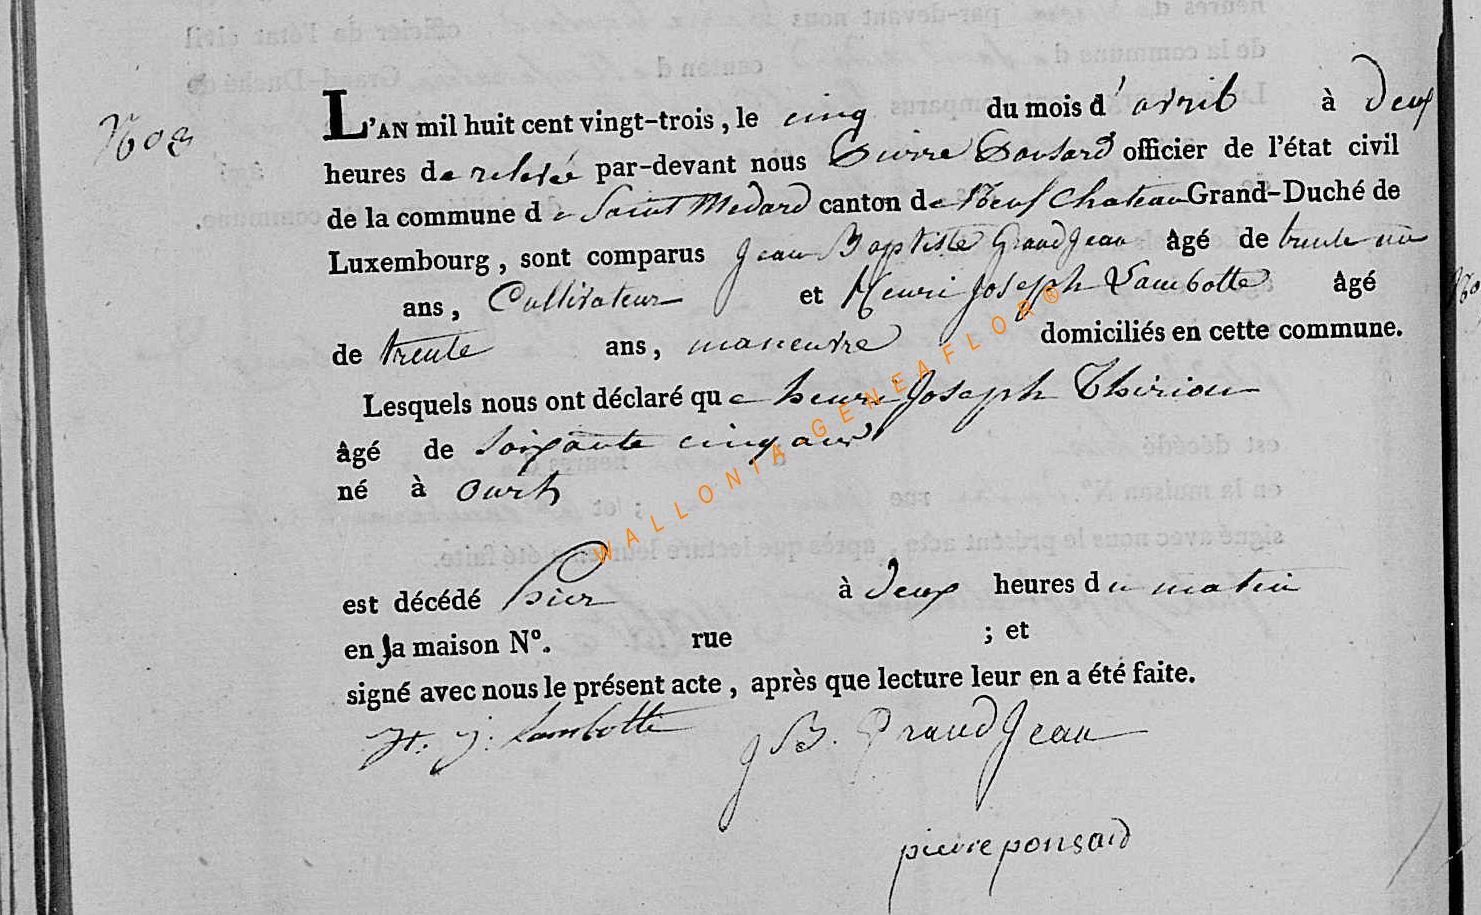 N° 8
L'AN mil huit cent vingt-trois, le cinq du mois d'avril à deux
heures de relevée par-devant nous Pierre Ponsard officier de l'état civil
de la commune de Saint Medard canton de Neufchateau Grand-Duché de
Luxembourg, sont comparus Jean Baptiste GrandJean âgé de trente un
ans, Cultivateur et Henri Joseph Lambotte âgé
de trente ans, maneuvre domiciliés en cette commune.
Lesquels nous ont déclaré que henri Joseph Thirion
âgé de soixante cinq ans
né à ourth
est décédé hier à deux heures du matin
en sa maison N°. rue ; et
signé avec nous le présent acte, après que lecture leur en a été faite.
H. J. Lambotte J B. GrandJean
pierre ponsard
WALLONIA GENEAFLOR®